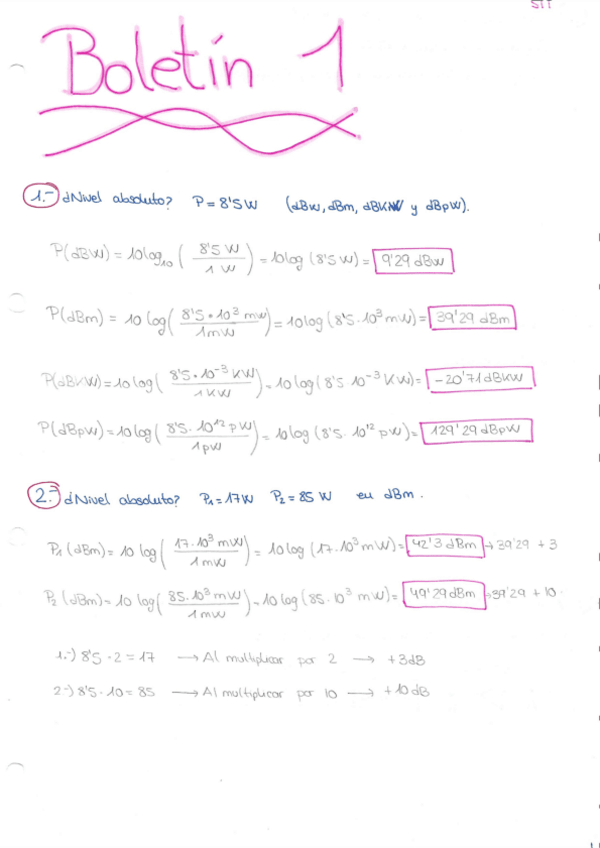 STT
Boletín 1
1.- ¿Nivel absoluto? P = 8'5 W (dBW, dBm, dBKW y dBpW).
P(dBW) = 10 log₁₀ ( 8'5 W / 1 W ) = 10 log (8'5 W) = 9'29 dBW
P(dBm) = 10 log ( 8'5 · 10³ mW / 1 mW ) = 10 log (8'5 · 10³ mW) = 39'29 dBm
P(dBKW) = 10 log ( 8'5 · 10⁻³ KW / 1 KW ) = 10 log (8'5 · 10⁻³ KW) = -20'71 dBKW
P(dBpW) = 10 log ( 8'5 · 10¹² pW / 1 pW ) = 10 log (8'5 · 10¹² pW) = 129'29 dBpW
2.- ¿Nivel absoluto? P₁ = 17 W P₂ = 85 W en dBm.
P₁ (dBm) = 10 log ( 17 · 10³ mW / 1 mW ) = 10 log (17 · 10³ mW) = 42'3 dBm → 39'29 + 3
P₂ (dBm) = 10 log ( 85 · 10³ mW / 1 mW ) = 10 log (85 · 10³ mW) = 49'29 dBm → 39'29 + 10
1.-) 8'5 · 2 = 17 → Al multiplicar por 2 → +3dB
2.-) 8'5 · 10 = 85 → Al multiplicar por 10 → +10 dB